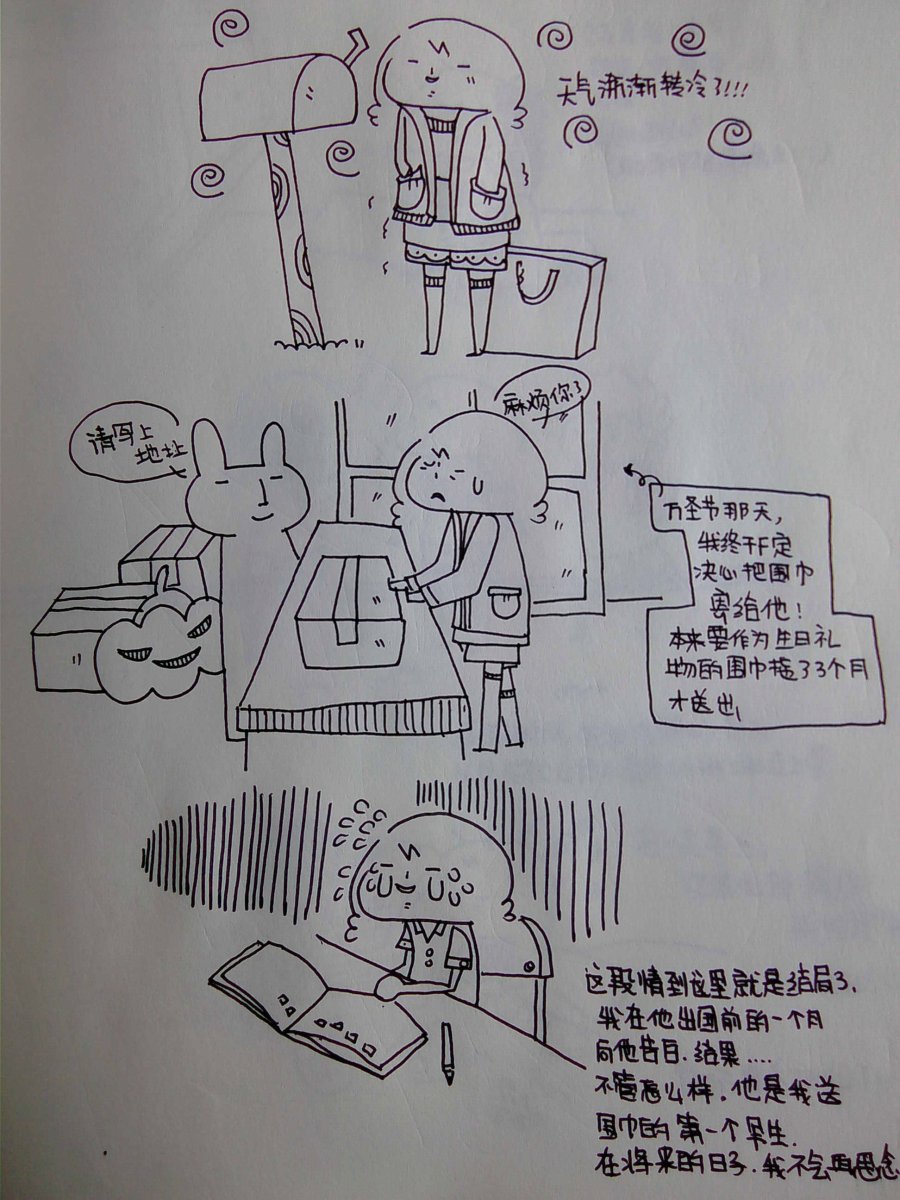 天气渐渐转冷了!!!
请写上
地址
麻烦你了
万圣节那天,
我终于下定
决心把围巾
寄给他!
本来要作为生日礼
物的围巾拖了3个月
才送出,
这段情到这里就是结局了.
我在他出国前的一个月
向他告白.结果....
不管怎么样.他是我送
围巾的第一个男生.
在将来的日子.我不会再思念